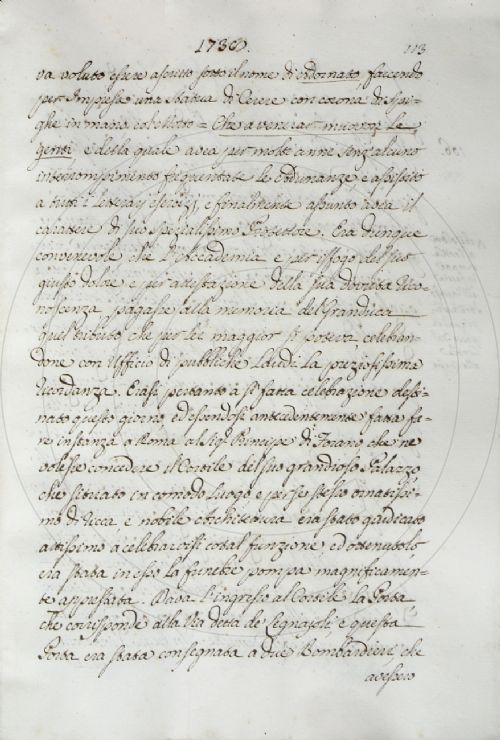 1730.
113
va voluto essere assunto sotto il nome di, facendo
per Impresa una Statua di Cerere con corona di Spi-
ghe in mano, col Motto = Che a venerar muove le
genti e della quale avea per molti anni senz'alcuno
interrompimento frequentate le Adunanze, e assistito
a tutti i Letterarj esercizj, e finalmente assunto avea il
carattere di suo specialissimo Protettore. Era dunque
convenevole che l'Accademia e per isfogo del suo
giusto dolore e per attestazione della sua dovuta rico-
noscenza, pagasse alla memoria del Grandica
quel tributo, che per lei maggior si poteva, celebran-
done con Ufficio di pubbliche Laudi la preziosissima
ricordanza. Erasi pertanto a sì fatta celebrazione desti-
nato questo giorno, ed essendosi antecedentemente fatta fa-
re instanza a Roma al Sig.r Principe di Forano che ne
volesse concedere il Cortile del suo grandioso Palazzo
che situato in comodo luogo e per se stesso ornatissi-
mo di ricca, e nobile Architettura era stato giudicato
attissimo a celebrarvisi cotal funzione ed ottenutolo
era stata in esso la funebre pompa magnificamen-
te apprestata. Dava l'ingresso al Cortile la Porta
che corrisponde alla Via detta de' Legnajoli, e questa
Porta era stata consegnata a due Bombardieri, che